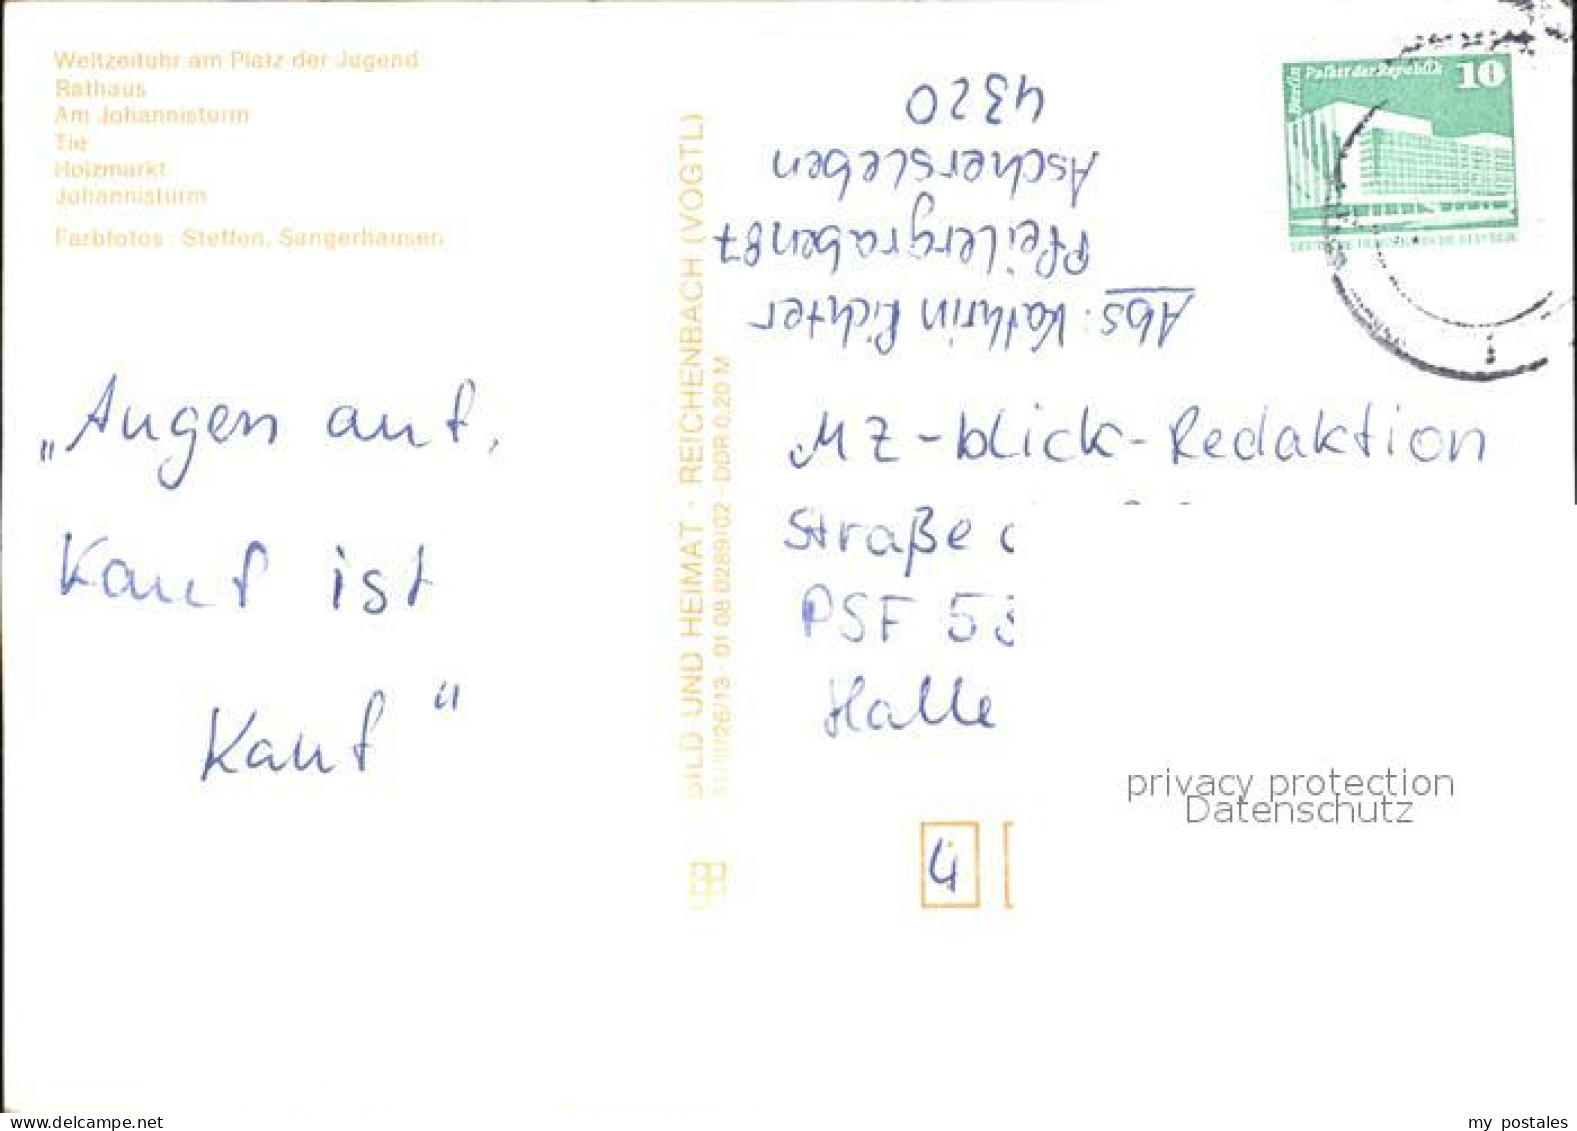 Weltzeituhr am Platz der Jugend
Rathaus
Am Johannisturm
Tie
Holzmarkt
Johannisturm
Farbfotos: Steffen, Sangerhausen
„Augen auf,
Kauf ist
Kauf“
BILD UND HEIMAT · REICHENBACH (VOGTL)
01 08 0289/02 · DDR 0,20 M
Berlin
Palast der Republik
10
Abs: Kathrin Richter
Pfeilergraben 87
Aschersleben
4320
MZ-blick-Redaktion
Straße
PSF 53
Halle
4
privacy protection
Datenschutz
my postales